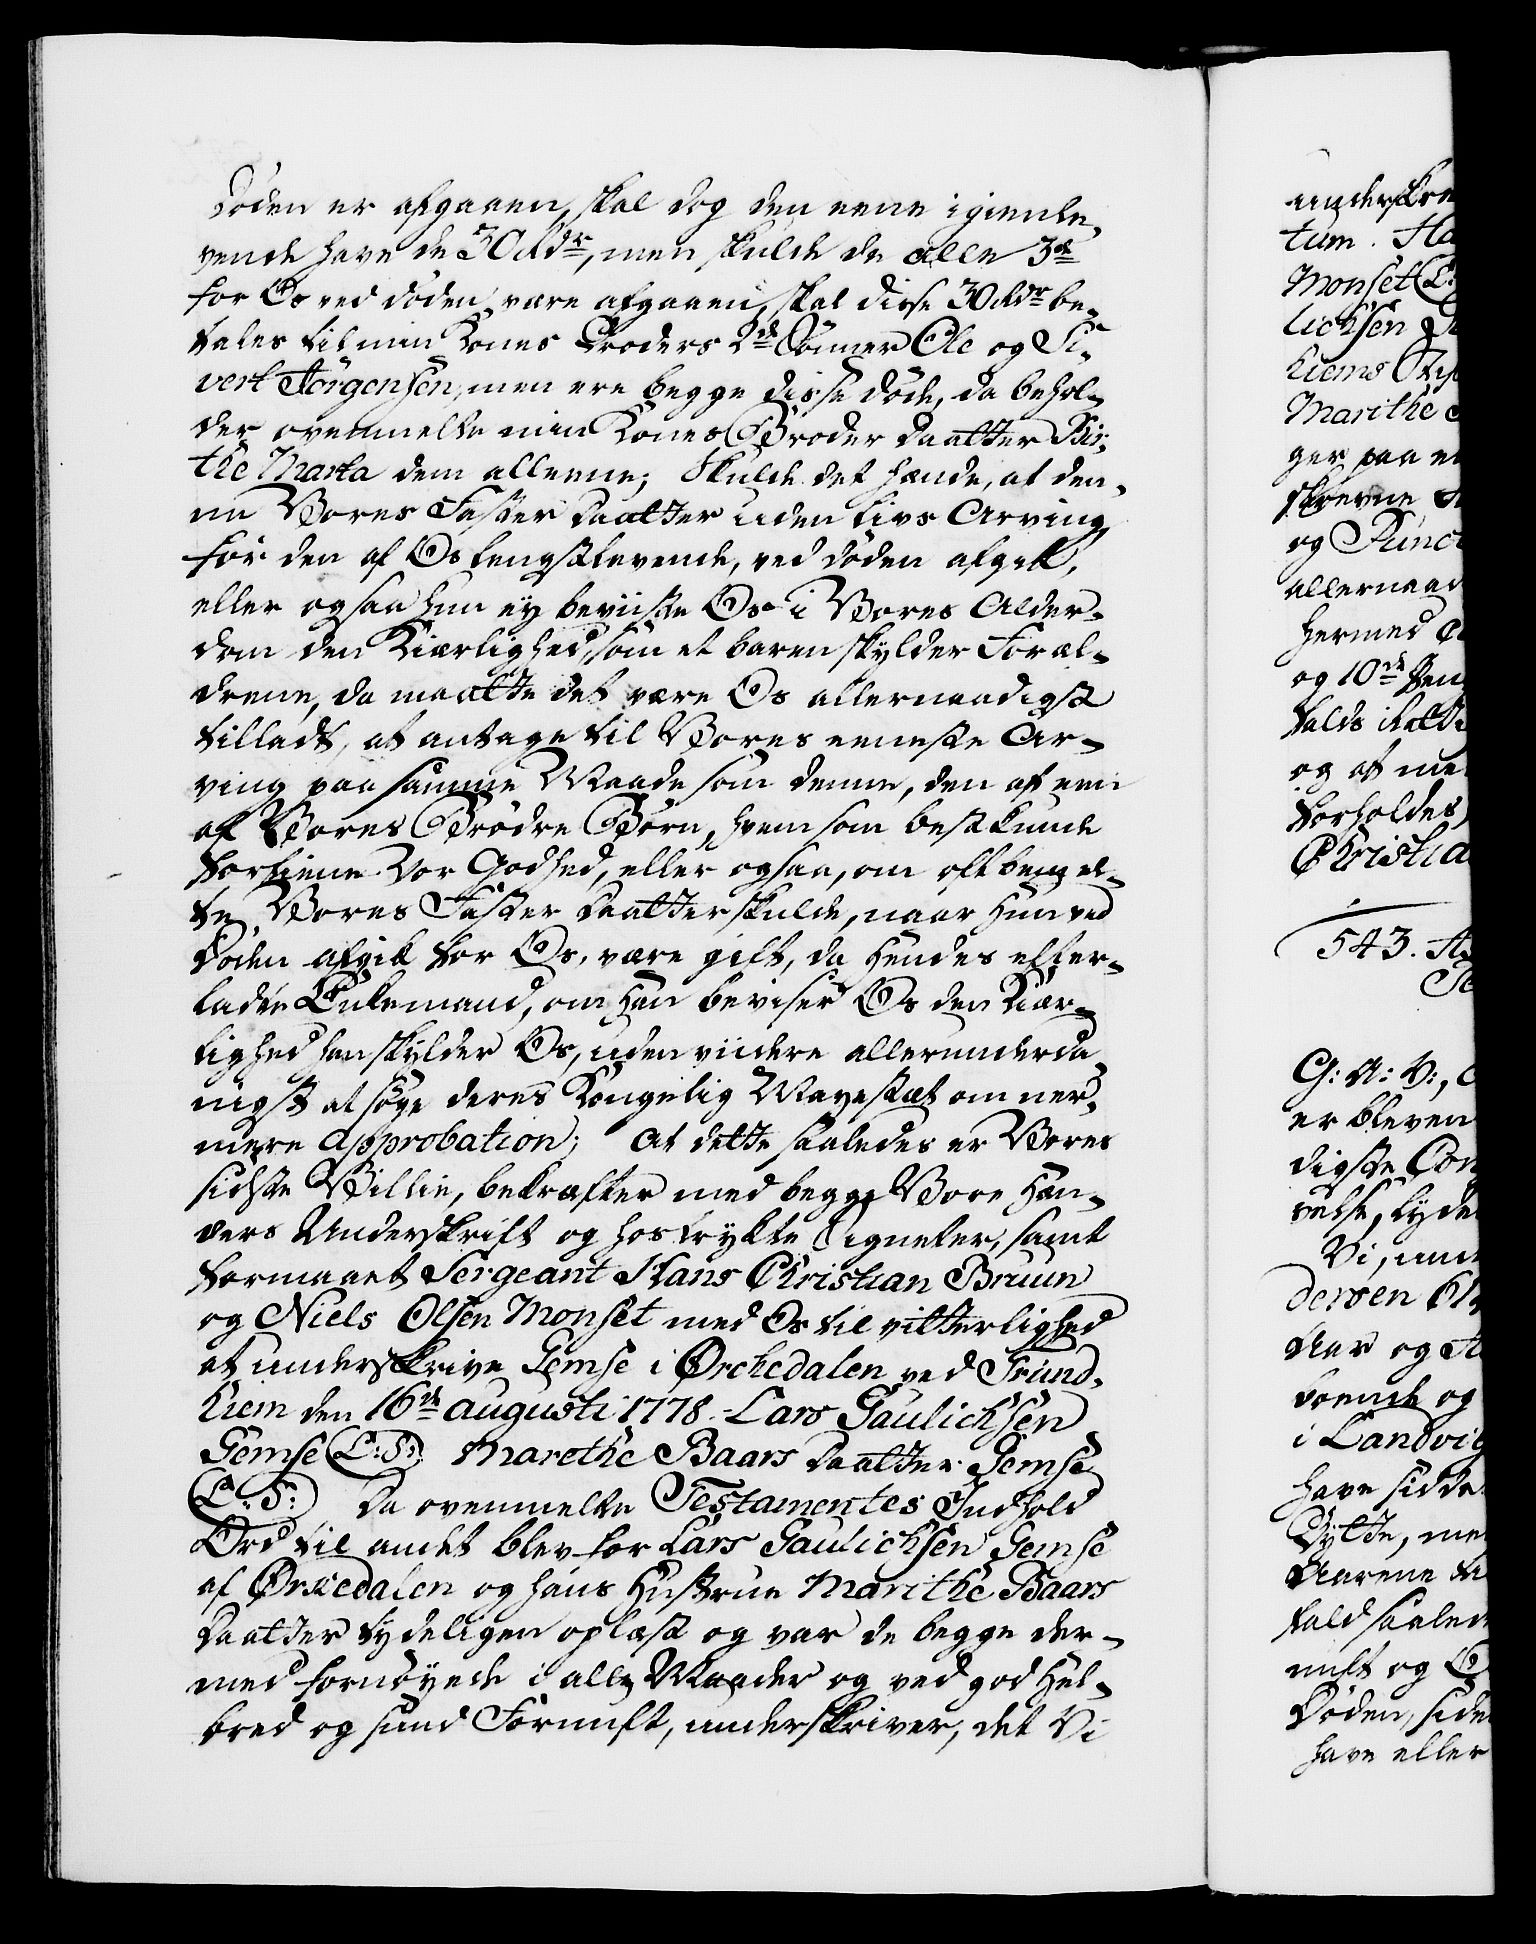 Døden er afgaaen, skal dog den eene igienle,
vende have de 30 Rdr, men skulde de alle 3de
for Os ved døden være afgaaen, skal disse 30 Rdr be,
tales til min Kones Broders 2de Sønner Ole og Si,
vert Jørgensen, men ere begge disse døde, da behol,
der ovenmelte min Kones Broder Daatter Bir,
the Marta dem alleene; Skulde det hænde, at den,
ne Vores Fæster Daatter uden Livs Arving,
før den af Os længstlevende, ved døden afgik,
eller ogsaa hun ey beviiste Os i Vores Alder,
dom den Kiærlighed, som et baren skylder Foræl,
drene, da maatte det være Os allernaadigst
tilladt, at antage til Vores eeneste Ar,
ving paa samme Maade som denne, den af een
af Vores Brødre Børn, hvem som best kunde
fortiene Vor Godhed, eller ogsaa, om oftbemel,
te Vores Fæster Daatter skulde, naar Hun ved
Døden afgik for Os, være gift, da Hendes efter,
ladte Enkemand, om Han beviser Os den Kiær,
lighed han skylder Os, uden viidere allerunderda,
nigst at søge deres Kongelig Mayestæt om nær,
mere Approbation; At dette saaledes er Vores
sidste Villie, bekræfter med begge Vore Hæn,
ders Underskrift og hostrykte Signeter, samt
formaaet Sergeant Hans Christian Bruun
og Niels Olsen Monset med Os til vitterlighed
at underskrive Gemse i Ørchedalen ved Trund,
hiem den 16de augusti 1778. Lars Gaulichsen
Gemse (L: S:) Marethe Baars Daatter Gemse
(L: S:) Da ovenmelte Testamentes Indhold
Ord til andet blev for Lars Gaulichsen Gemse
af Ørkedalen og hans Hustrue Marithe Baars
Daatter tydeligen oplæst og var de begge der,
med fornøyede i alle Maader og ved god Hel,
bred og sund Fornuft, underskriver, det Vi
tum. Ha
Monset (L:
lichsen
hiems
Marithe
ger paa
skrevne
og
allernaad
Hermed
og 10de
falds
og af
forholdes,
Christia
543.
G: A: V:,
er bleven
digste Con
velse, lyde
Vi, und
dersen
Aar og
boende og
i Landvig
have
Aarene
fald saaled
nuft og
Døden, side
have eller